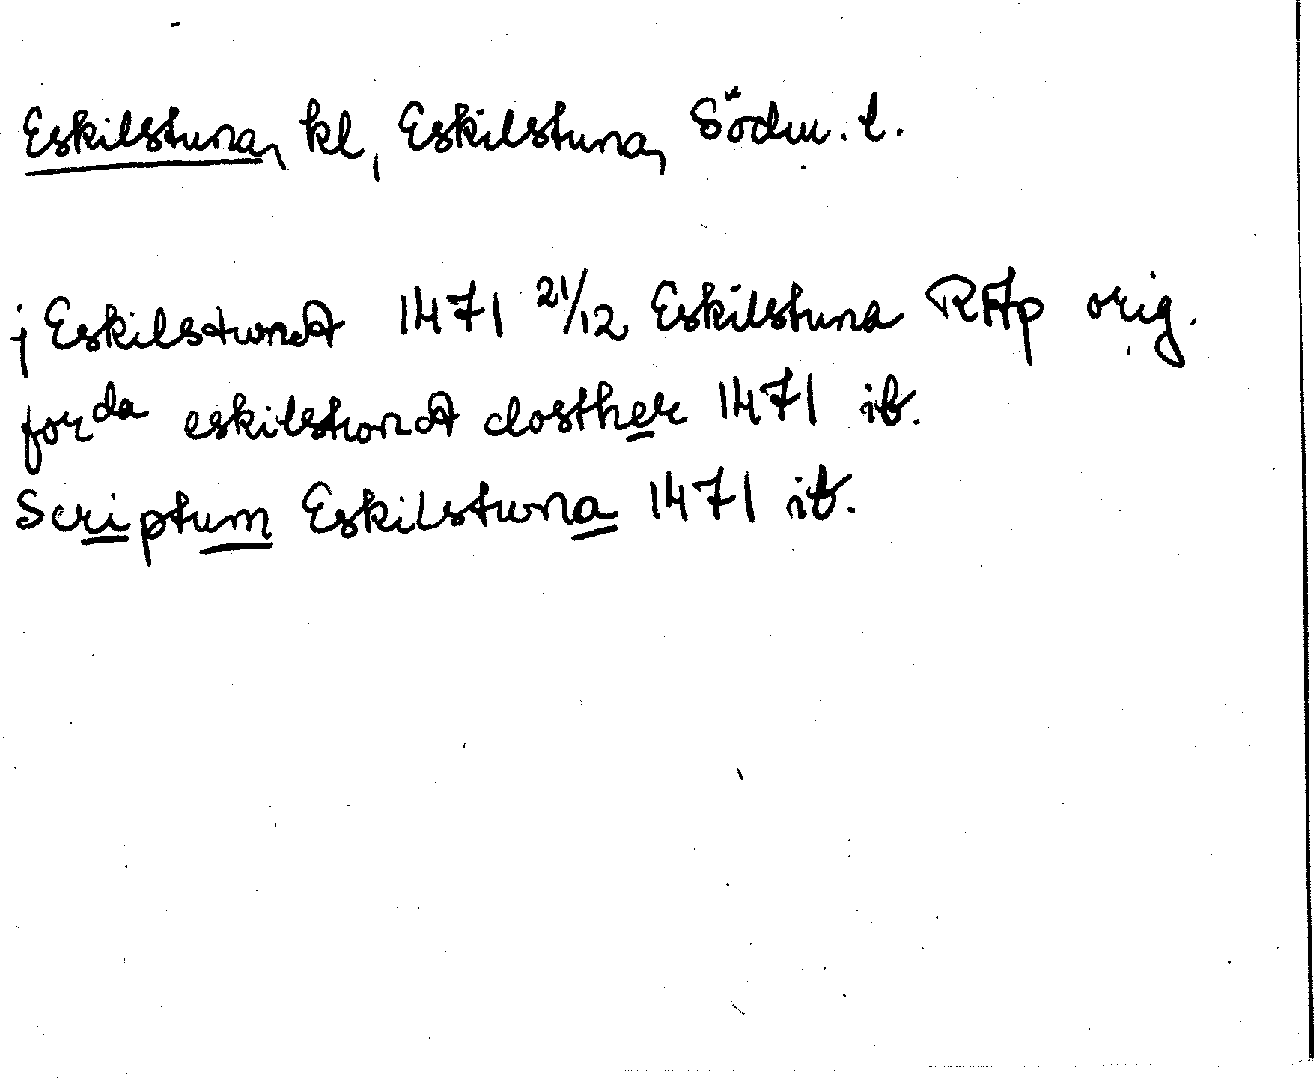 Eskilstuna, kl, Eskilstuna, Södm. l.
j Eskilstunæ 1471 21/12 Eskilstuna RAp orig.
for da eskilstonæ closther 1471 ib.
Scriptum Eskilstuna 1471 ib.